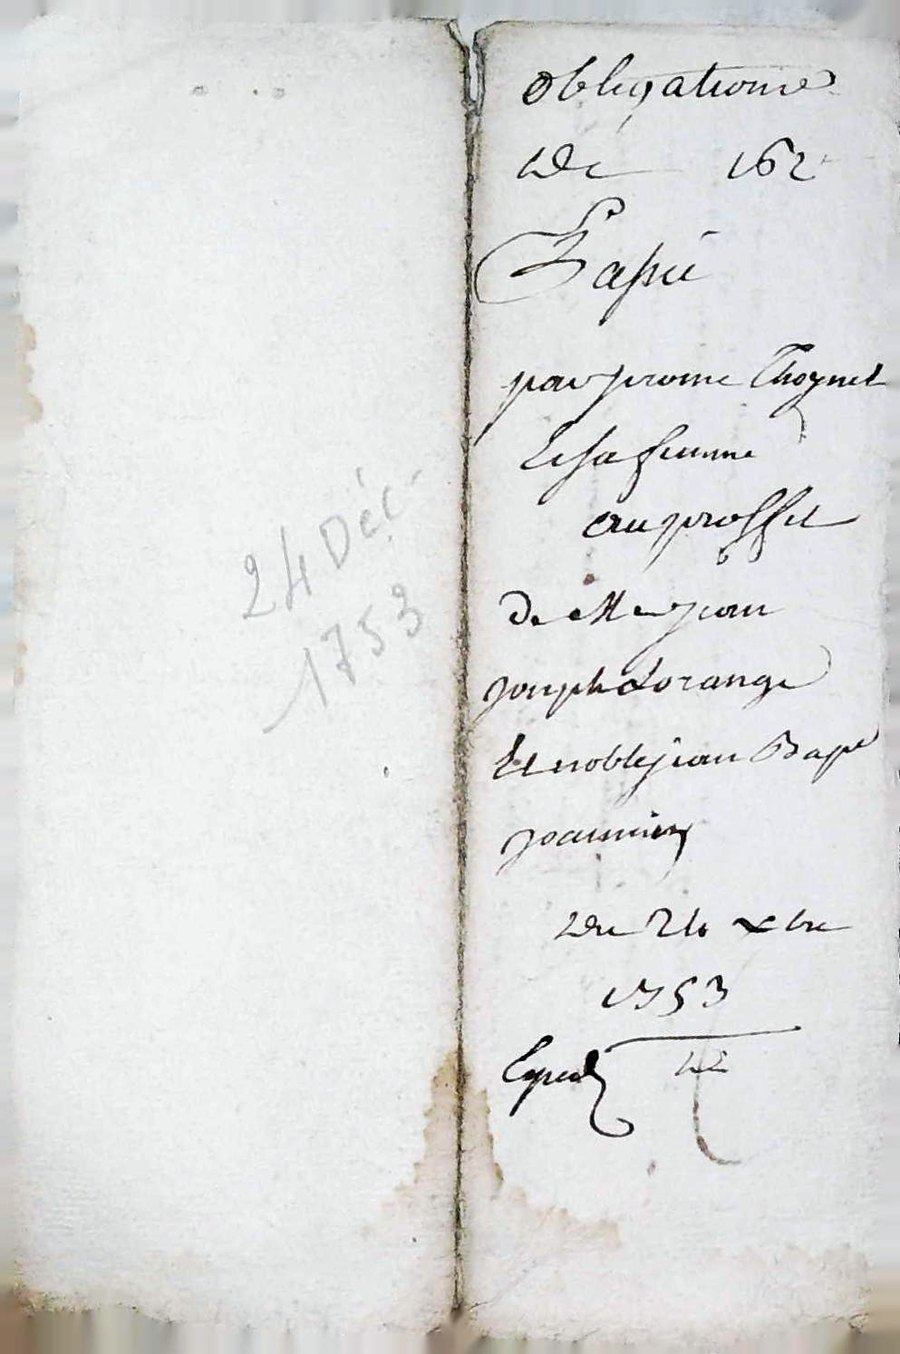 24 Déc.
1753
obligationne
De 162 ᵗ
Passée
par jerome Thoynet
Et sa femme
au proffit
de Me jean
joseph Lorange
Et noble jean Bapᵗᵉ
joannin
Du 24 xbre
1753
Exped